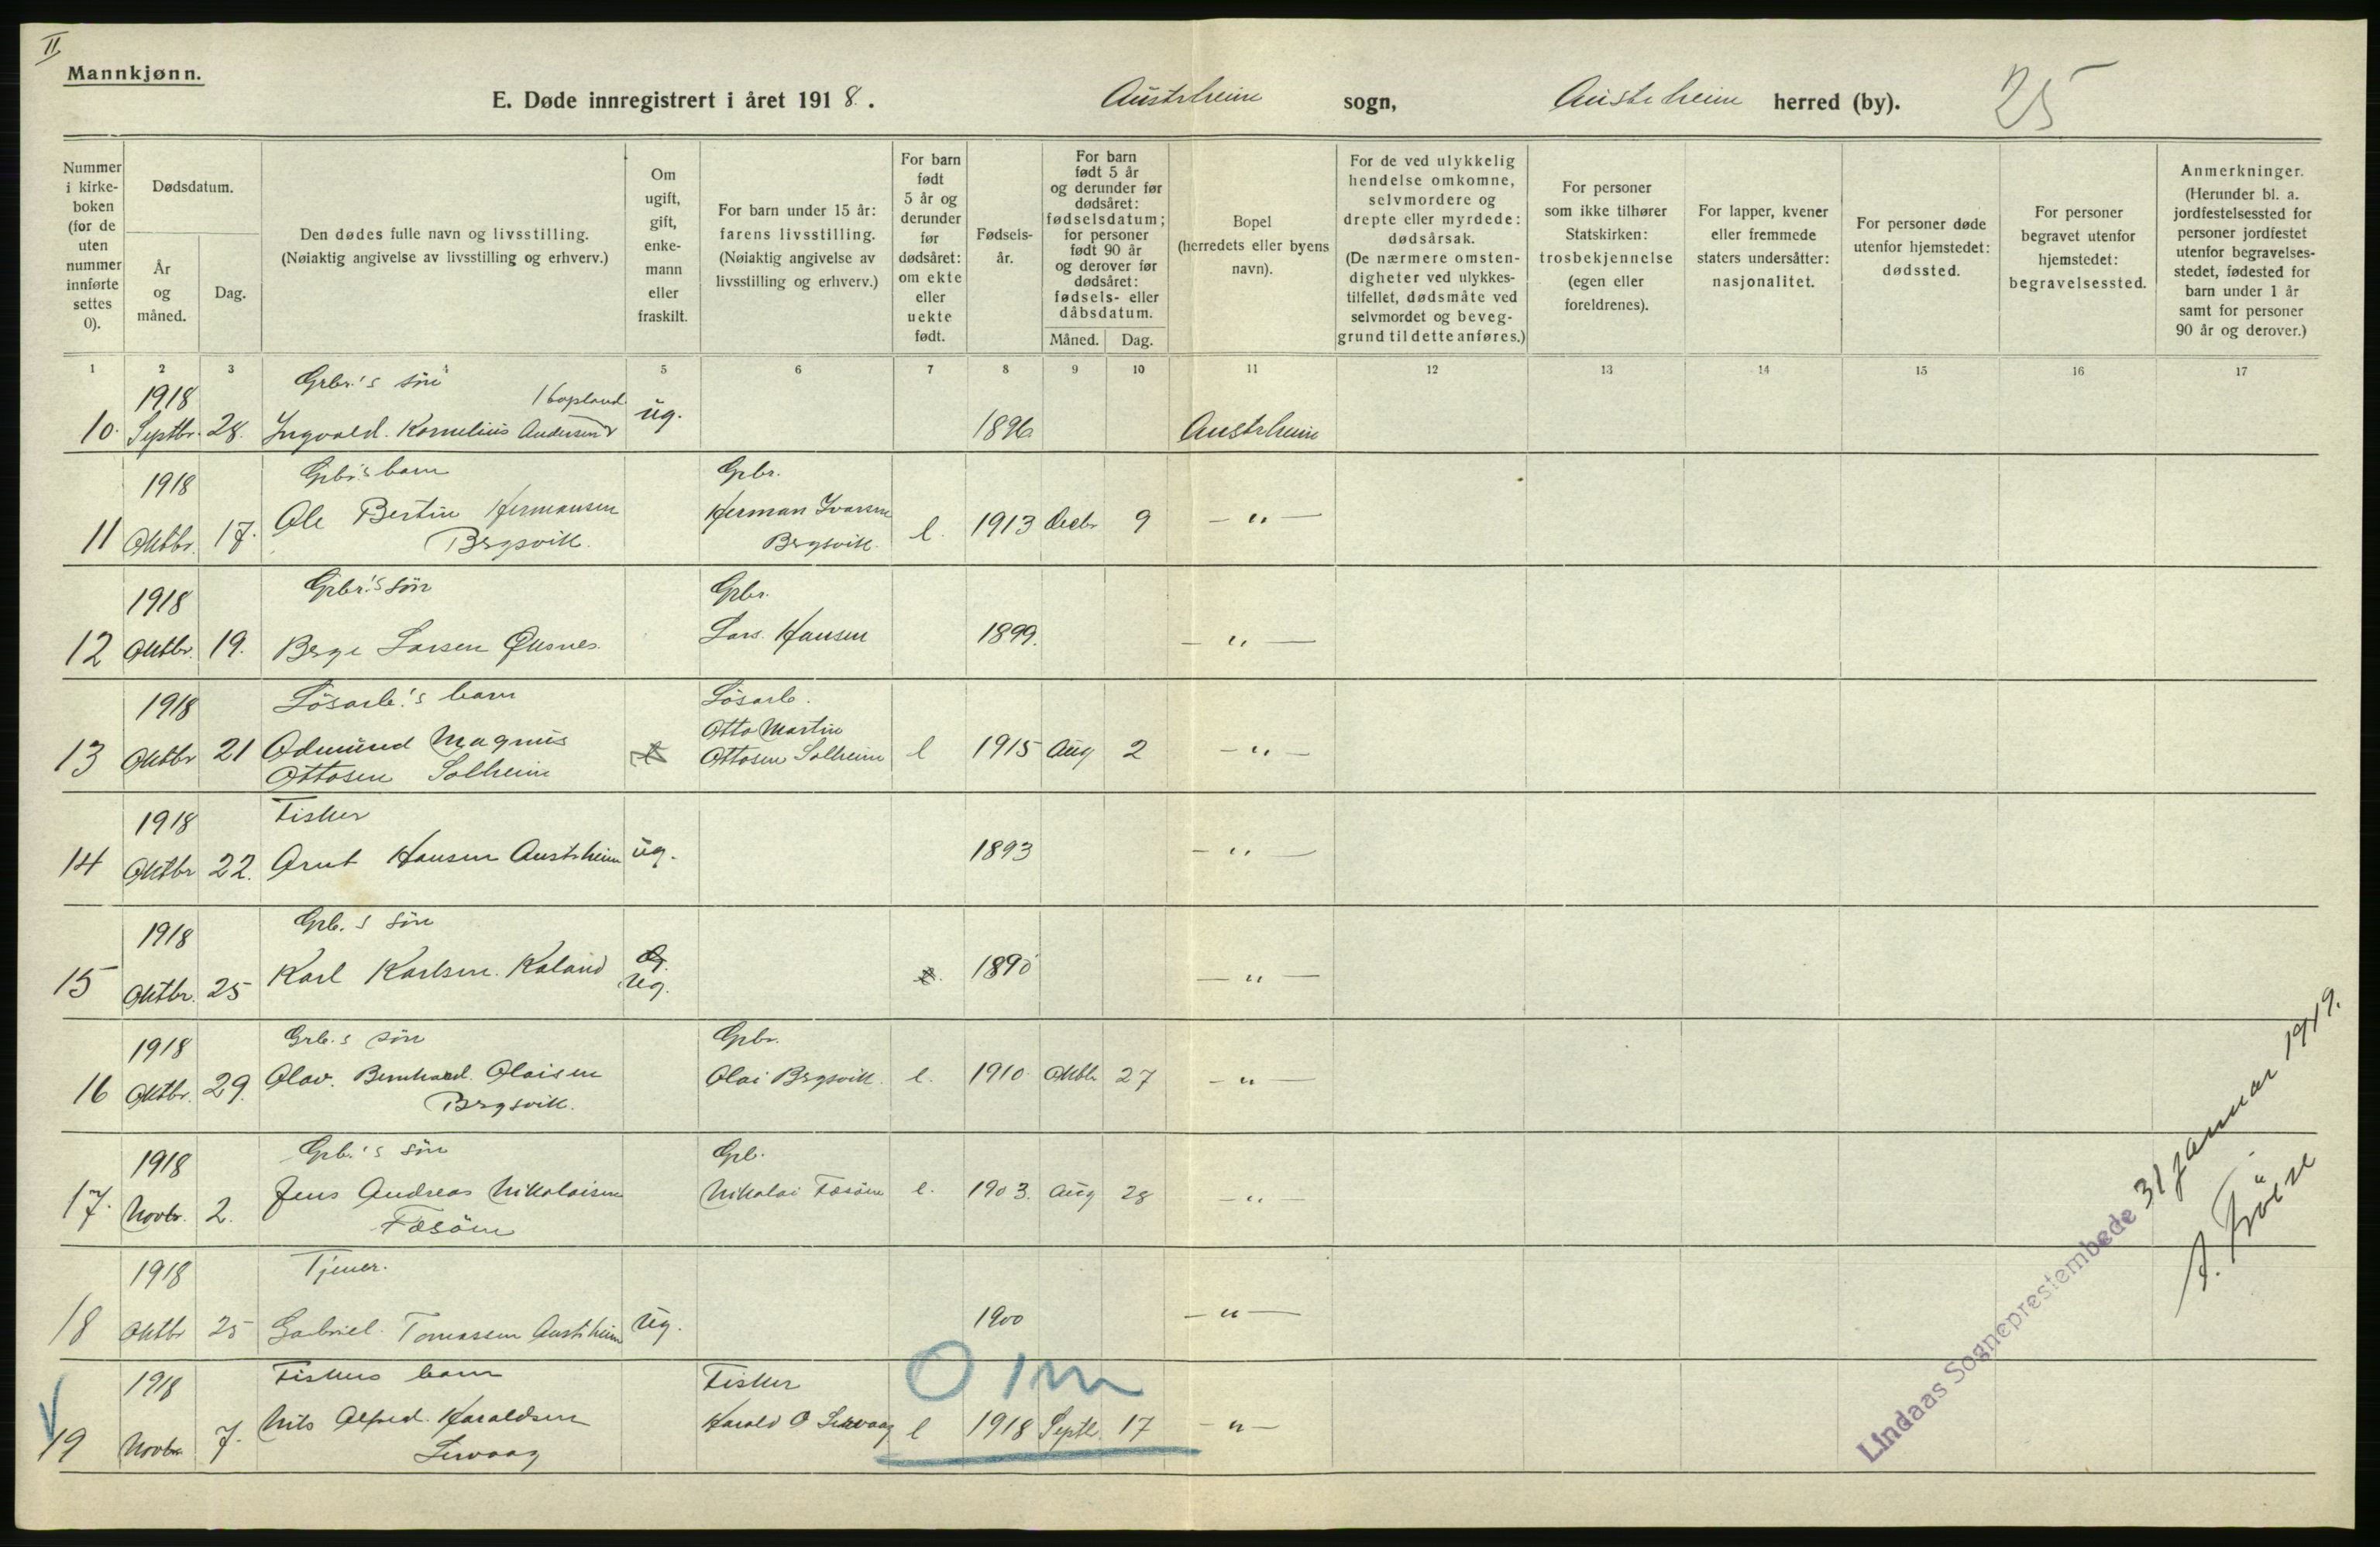 II
Mannkjønn.
E. Døde innregistrert i året 1918. Austrheim sogn, Austrheim herred (by). 25
Nummer i kirke-boken (for de uten nummer innførte settes 0).
Dødsdatum.
År og måned.
Dag.
Den dødes fulle navn og livsstilling.
(Nøiaktig angivelse av livsstilling og erhverv.)
Om ugift, gift, enke-mann eller fraskilt.
For barn under 15 år: farens livsstilling.
(Nøiaktig angivelse av livsstilling og erhverv.)
For barn født 5 år og derunder før dødsåret: om ekte eller uekte født.
Fødsels-år.
For barn født 5 år og derunder før dødsåret: fødselsdatum; for personer født 90 år og derover før dødsåret: fødsels- eller dåbsdatum.
Måned. Dag.
Bopel (herredets eller byens navn).
For de ved ulykkelig hendelse omkomne, selvmordere og drepte eller myrdede: dødsårsak.
(De nærmere omsten-digheter ved ulykkes-tilfellet, dødsmåte ved selvmordet og beveg-grund til dette anføres.)
For personer som ikke tilhører Statskirken: trosbekjennelse (egen eller foreldrenes).
For lapper, kvener eller fremmede staters undersåtter: nasjonalitet.
For personer døde utenfor hjemstedet: dødssted.
For personer begravet utenfor hjemstedet: begravelsessted.
Anmerkninger.
(Herunder bl. a. jordfestelsessted for personer jordfestet utenfor begravelses-stedet, fødested for barn under 1 år samt for personer 90 år og derover.)
1 2 3 4 5 6 7 8 9 10 11 12 13 14 15 16 17
1918 Grbr.'s søn
10. Septbr. 28. Ingvald Kornelius Andersen ug. 1896 Austrheim
1918 Gpbr's barn Gpbr.
11 Oktbr. 17. Ole Bertin Hermansen Herman Ivarsen e. 1913 Decbr 9 — " —
Bergsvik. Bergsvik.
1918 Gpbr.'s søn Gpbr.
12 Oktbr. 19. Berge Larsen Øksnes. Lars Hansen 1899. — " —
1918 Løsarb.'s barn Løsarb.
13 Oktbr 21 Odmund Magnus Otto Martin
Ottosen Solheim Ottosen Solheim e 1915 Aug 2 — " —
1918 Fisker
14 Oktbr 22. Arnt Hansen Austrheim ug. 1893 — " —
1918 Grb.s søn
15 Oktbr. 25 Karl Karlsen Kaland ug. 1890 — " —
1918 Grb.s søn Gpbr.
16 Oktbr. 29. Olav Bernhard Olaisen Olai Bergsvik. e. 1910 Oktbr 27 — " —
Bergsvik.
1918 Gpb.'s søn Gpb.
17. Novbr. 2. Jens Andreas Nikolaisen Nikolai Fosöen e. 1903. Aug 28 — " —
Fosöen
1918 Tjener.
18 Oktbr 25 Gabriel Tomassen Austrheim Ug. 1900 — " —
1918 Fiskers barn Fisker 0 1m
19 Novbr 7. Nils Alfred Haraldsen Harald O e 1918 Septb. 17 — " —
Lindaas Sogneprestembede 31 januar 1919.